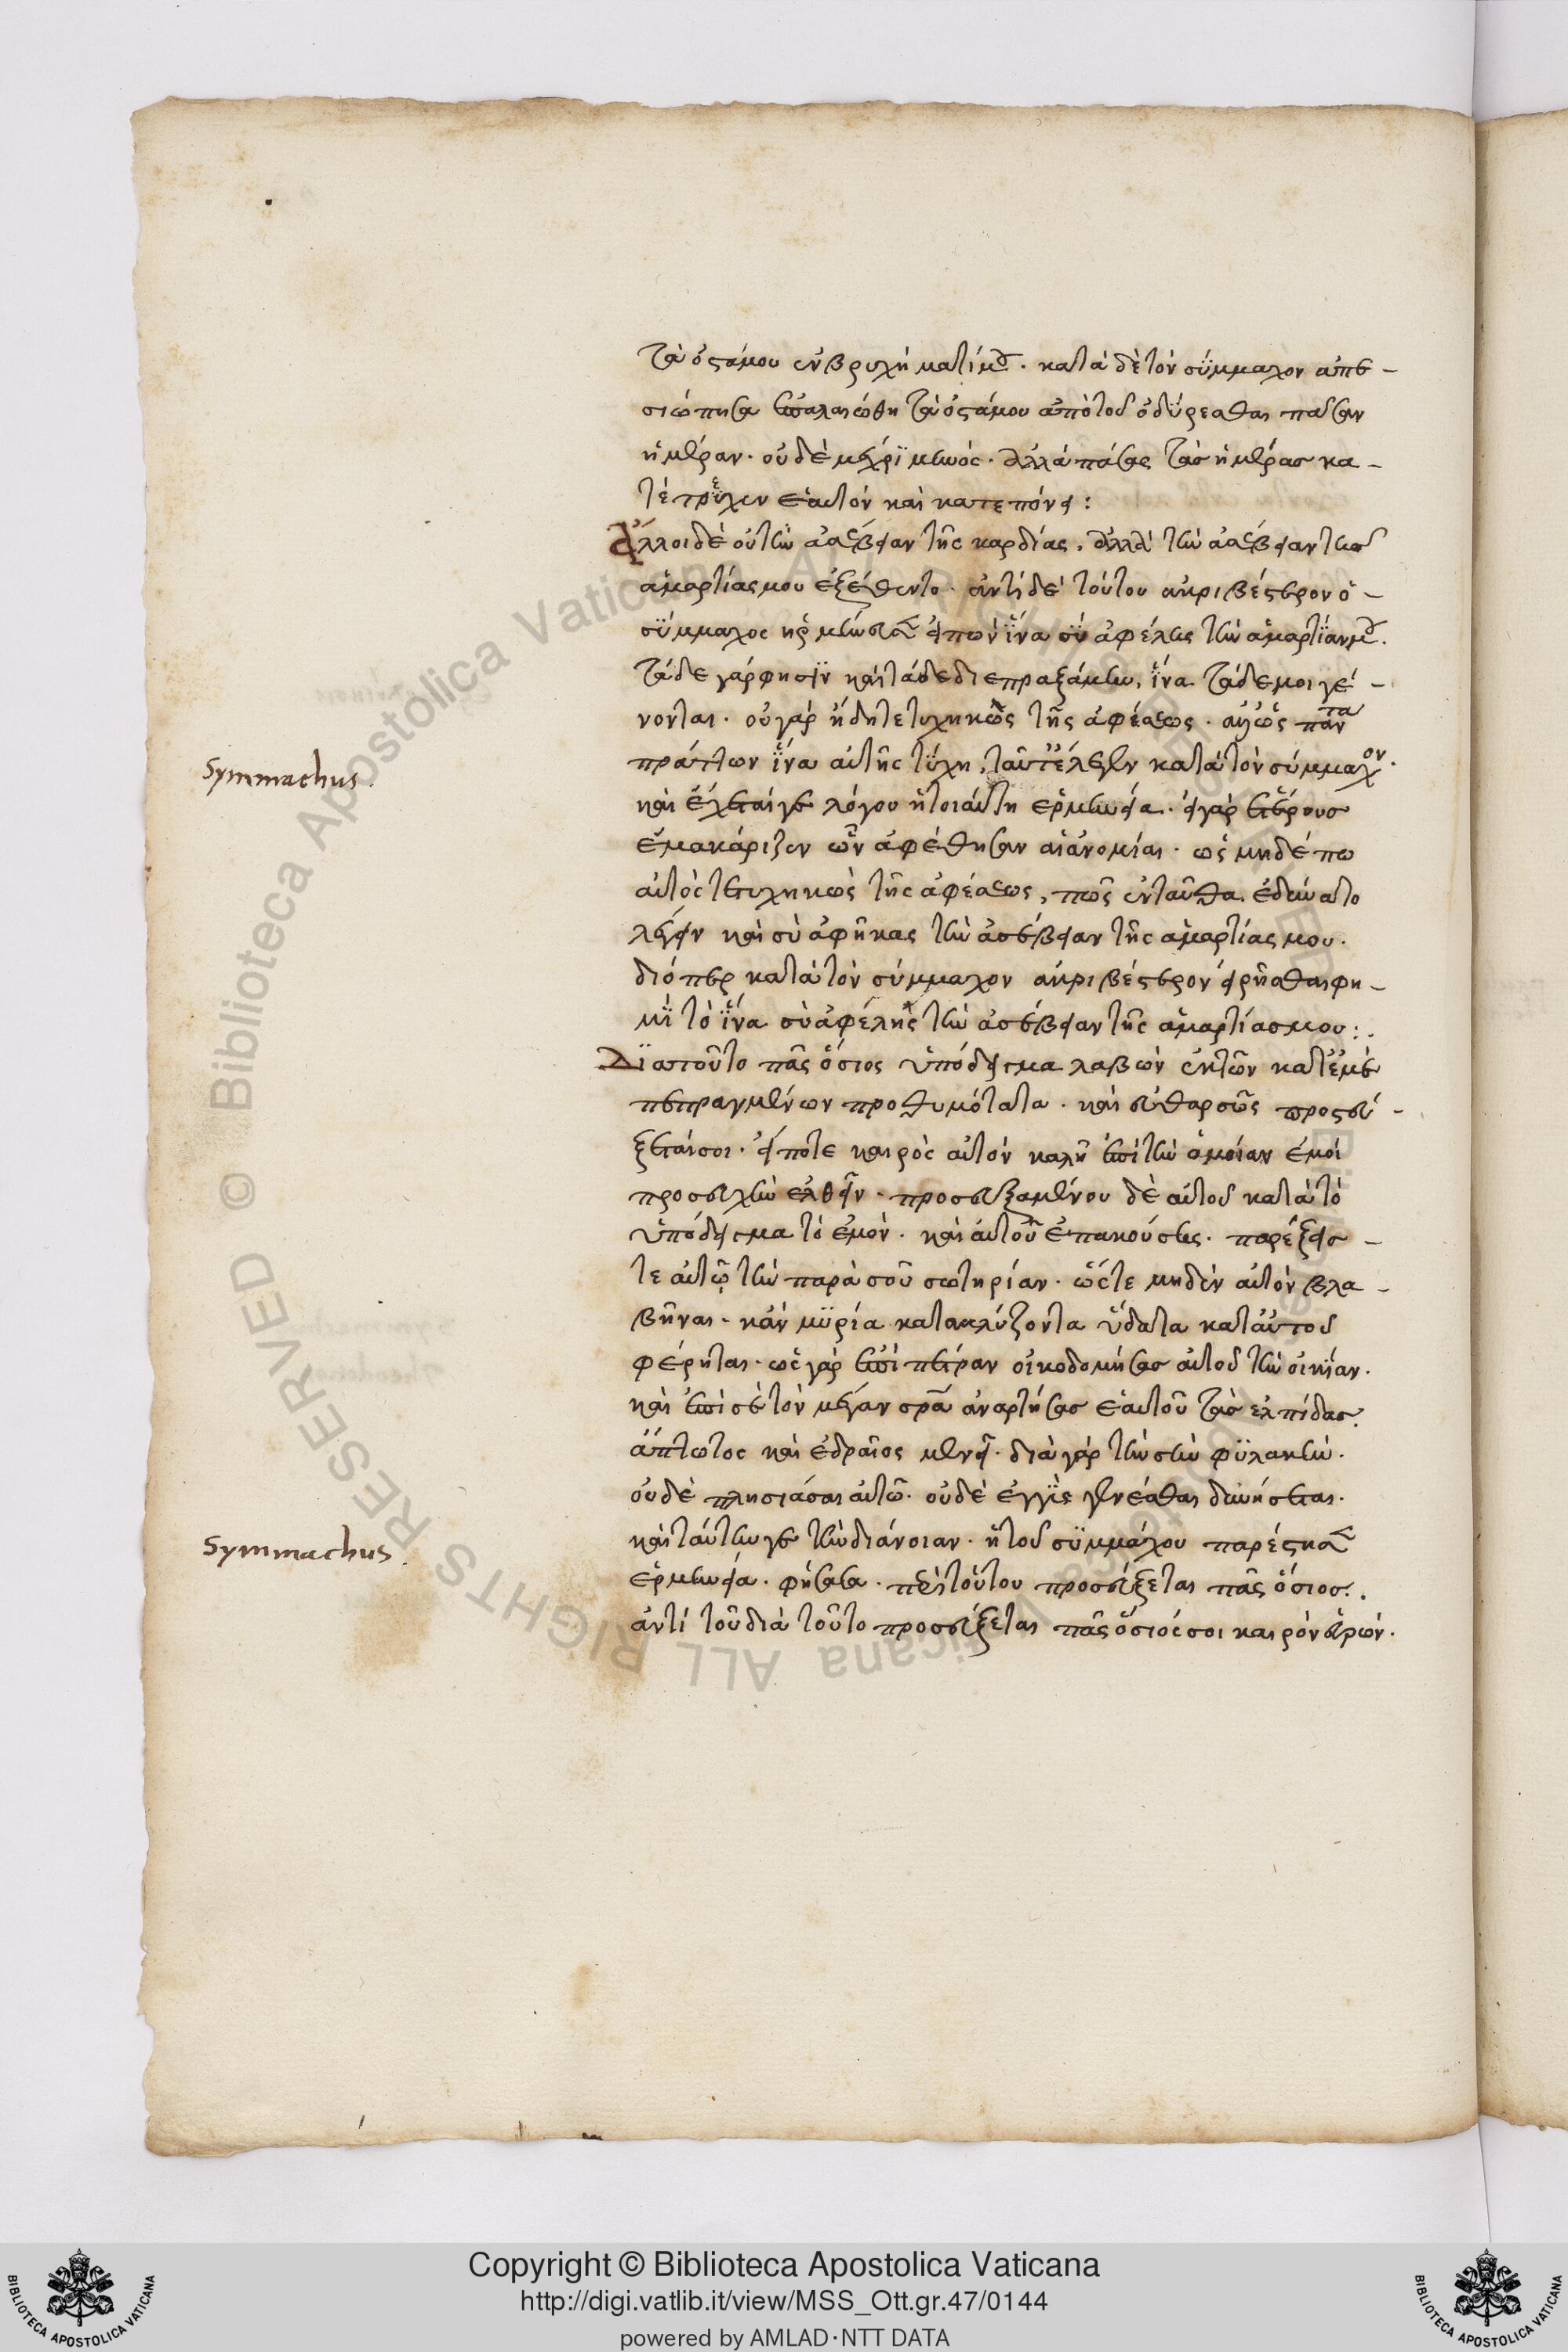 τὰ ὀστᾶ μου ἐν βρυχήματί μου. κατὰ δὲ τὸν σύμμαχον ἀπε-
σιώπησα ἐπαλαιώθη τὰ ὀστά μου ἀπὸ τοῦ ὀδύρεσθαι πᾶσαν
ἡμέραν. οὐδὲ μέχρι μηνός. ἀλλὰ πάσας τὰς ἡμέρας κα-
τέτρυχεν ἑαυτὸν καὶ κατεπόνει:
Ἄλλοι δὲ οὐ τὴν ἀσέβειαν τῆς καρδίας, ἀλλὰ τὴν ἀσέβειαν τῆς
ἁμαρτίας μου ἐξέθεντο. ἀντὶ δὲ τούτου ἀκριβέστερον ὁ
σύμμαχος ἡρμήνευσεν εἰπὼν ἵνα σὺ ἀφέλῃς τὴν ἁμαρτίαν μου.
τάδε γάρ φησιν καὶ τάδε διεπραξάμην, ἵνα τάδε μοι γέ-
νονται. οὐ γὰρ ἤδη τετυχηκὼς τῆς ἀφέσεως. ἀλλ' ὡς πάντα
πράττων ἵνα αὐτῆς τύχῃ, ταῦτ' ἔλεγεν κατὰ τὸν σύμμαχον.
Symmachus.
καὶ ἔχεταί γε λόγου ἡ τοιαύτη ἑρμηνεία. εἰ γὰρ ἑτέρους
ἐμακάριζεν ὧν ἀφέθησαν αἱ ἀνομίαι. ὡς μηδέπω
αὐτὸς τετυχηκὼς τῆς ἀφέσεως, πῶς ἐνταῦθα ἐδύνατο
λέγειν καὶ σὺ ἀφῆκας τὴν ἀσέβειαν τῆς ἁμαρτίας μου.
διόπερ κατὰ τὸν σύμμαχον ἀκριβέστερον εἰρῆσθαι φη-
μὶ τὸ ἵνα σὺ ἀφέλῃς τὴν ἀσέβειαν τῆς ἁμαρτίας μου:.
Διατοῦτο πᾶς ὅσιος ὑπόδειγμα λαβὼν ἐκ τῶν κατ' ἐμὲ
πεπραγμένων προθυμότατα. καὶ εὐθαρσῶς προσεύ-
ξεταί σοι. εἴποτε καιρὸς αὐτὸν καλῇ ἐπὶ τὴν ὁμοίαν ἐμοὶ
προσευχὴν ἐλθεῖν. προσευξαμένου δὲ αὐτοῦ κατὰ τὸ
ὑπόδειγμα τὸ ἐμόν. καὶ αὐτοῦ ἐπακούσεις. παρέξεις
τε αὐτῷ τὴν παρὰ σοῦ σωτηρίαν. ὥστε μηδὲν αὐτὸν βλα-
βῆναι. κἂν μυρία κατακλύζοντα ὕδατα κατ' αὐτοῦ
φέρηται. ὡς γὰρ ἐπὶ πέτραν οἰκοδομήσας αὐτοῦ τὴν οἰκίαν.
καὶ ἐπὶ σὲ τὸν μέγαν σωτῆρα ἀναρτήσας ἑαυτοῦ τὰς ἐλπίδας.
ἄπτωτος καὶ ἑδραῖος μενεῖ. διὰ γὰρ τὴν σὴν φυλακήν.
οὐδὲ πλησιάσαι αὐτῷ. οὐδὲ ἐγγὺς γενέσθαι δυνήσεται.
καὶ ταύτην γε τὴν διάνοιαν. ἡ τοῦ συμμάχου παρέστησεν
Symmachus.
ἑρμηνεία. φήσασα. περὶ τούτου προσεύξεται πᾶς ὅσιος.
ἀντὶ τοῦ διὰ τοῦτο προσεύξεται πᾶς ὅσιός σοι καιρὸν εὑρών.
Copyright © Biblioteca Apostolica Vaticana
http://digi.vatlib.it/view/MSS_Ott.gr.47/0144
powered by AMLAD·NTT DATA